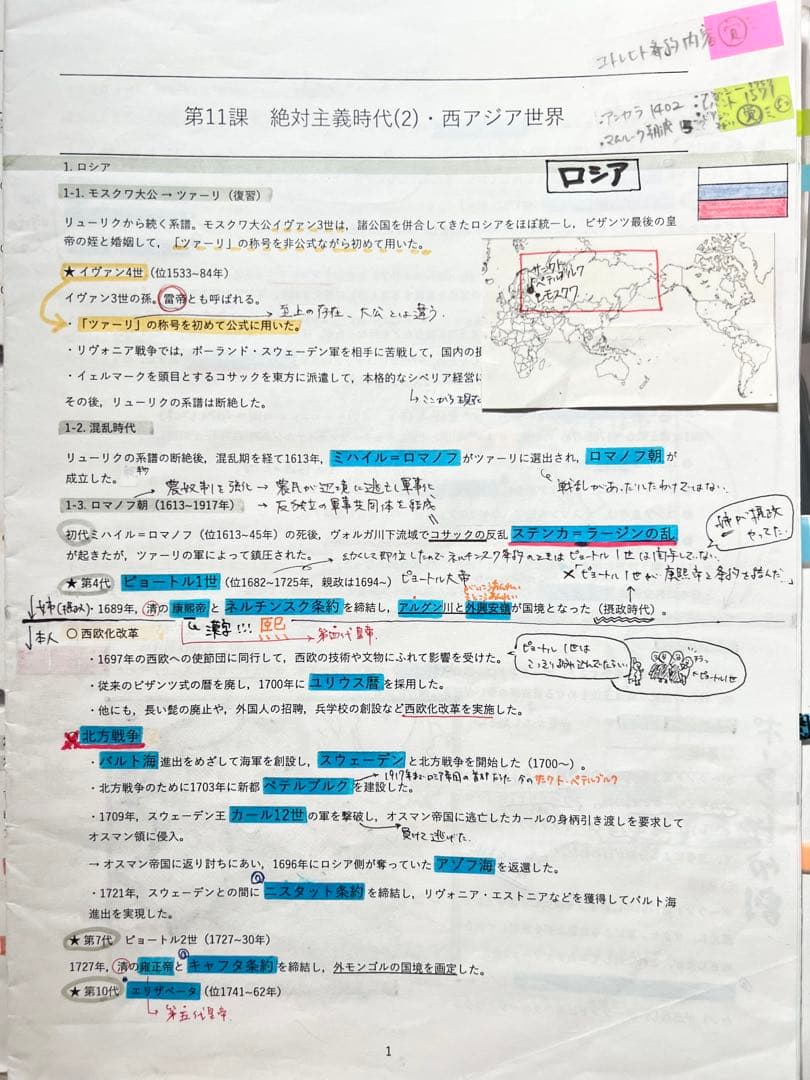 コトレヒト条約内容
・アンカラ 1402
・マムルーク朝
第11課　絶対主義時代(2)・西アジア世界
1. ロシア
ロシア
1-1. モスクワ大公→ツァーリ（復習）
リューリクから続く系譜。モスクワ大公イヴァン3世は，諸公国を併合してきたロシアをほぼ統一し，ビザンツ最後の皇
帝の姪と婚姻して，「ツァーリ」の称号を非公式ながら初めて用いた。
サンクト
ペテルブルク
モスクワ
★イヴァン4世（位1533~84年）
イヴァン3世の孫。雷帝とも呼ばれる。
至上の存在、大公とは違う．
・「ツァーリ」の称号を初めて公式に用いた。
・リヴォニア戦争では，ポーランド・スウェーデン軍を相手に苦戦して，国内の
・イェルマークを頭目とするコサックを東方に派遣して，本格的なシベリア経営に
その後，リューリクの系譜は断絶した。
ここから現在
1-2. 混乱時代
リューリクの系譜の断絶後，混乱期を経て1613年，ミハイル＝ロマノフがツァーリに選出され，ロマノフ朝が
成立した。
戦乱があったいたわけではない．
農奴制を強化→農民が辺境に逃亡し軍事化
1-3. ロマノフ朝（1613~1917年）
→反独立の軍事共同体を結成
初代ミハイル＝ロマノフ（位1613~45年）の死後，ヴォルガ川下流域でコサックの反乱ステンカ＝ラージンの乱
が起きたが，ツァーリの軍によって鎮圧された。
姉が摂政
やってた．
幼くして即位したので ネルチンスク条約のときはピョートル1世は関与してない．
★第4代 ピョートル1世（位1682~1725年，親政は1694~）
ピョートル大帝
✗「ピョートル1世が康熙帝と条約を結んだ」
姉(摂政)
・1689年，清の康熙帝とネルチンスク条約を締結し，アルグン川と外興安嶺が国境となった（摂政時代）。
本人
○西欧化改革
漢字!!! 熙
第四代皇帝．
・1697年の西欧への使節団に同行して，西欧の技術や文物にふれて影響を受けた。
ピョートル1世は
ピョートル1世
・従来のビザンツ式の暦を廃し，1700年にユリウス暦を採用した。
・他にも，長い髭の廃止や，外国人の招聘，兵学校の創設など西欧化改革を実施した。
北方戦争
・バルト海進出をめざして海軍を創設し，スウェーデンと北方戦争を開始した（1700~）。
1917年までロシア帝国の首都だった 今のサンクト・ペテルブルク
・北方戦争のために1703年に新都ペテルブルクを建設した。
・1709年，スウェーデン王カール12世の軍を撃破し，オスマン帝国に逃亡したカールの身柄引き渡しを要求して
オスマン領に侵入。
負けて逃げた．
→オスマン帝国に返り討ちにあい，1696年にロシア側が奪っていたアゾフ海を返還した。
・1721年，スウェーデンとの間にニスタット条約を締結し，リヴォニア・エストニアなどを獲得してバルト海
進出を実現した。
★第7代 ピョートル2世（1727~30年）
1727年，清の雍正帝とキャフタ条約を締結し，外モンゴルの国境を画定した。
★第10代 エリザベータ（位1741~62年）
第五代皇帝．
1